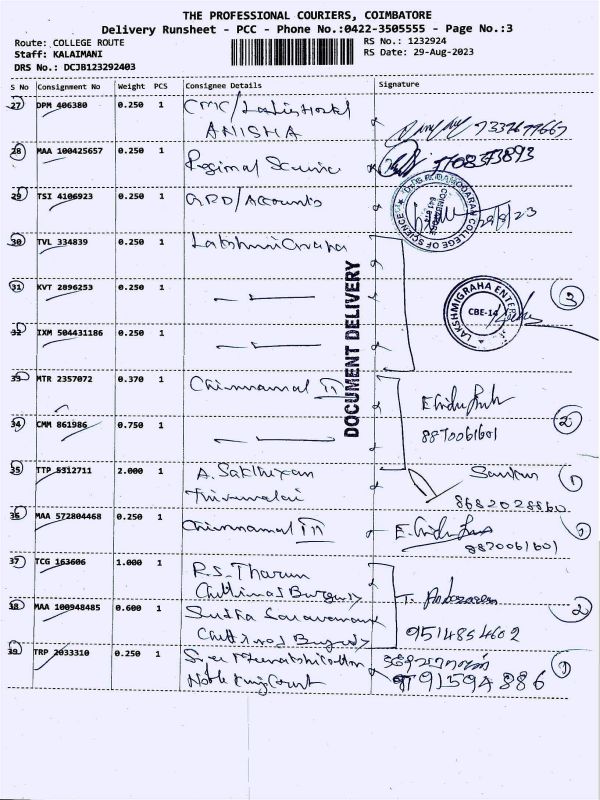 THE PROFESSIONAL COURIERS, COIMBATORE
Delivery Runsheet - PCC - Phone No.:0422-3505555 - Page No.:3
Route: COLLEGE ROUTE
Staff: KALAIMANI
DRS No.: DCJB123292403
RS No.: 1232924
RS Date: 29-Aug-2023
S No Consignment No Weight PCS Consignee Details Signature
27 DPM 406380 0.250 1 CMC/
ANISHA
7337677667
28 MAA 100425657 0.250 1 Regional Science
7708373893
29 TSI 4106923 0.250 1 GRD/Accounts
29/8/23
30 TVL 334839 0.250 1
31 KVT 2896253 0.250 1
LAKSHMIGRAHA ENTER
CBE-14
3
32 IXM 504431186 0.250 1
DOCUMENT DELIVERY
33 MTR 2357072 0.370 1 Chinnamal
34 CMM 861986 0.750 1
8870061601
2
35 TTP 5312711 2.000 1 A. Sakthivan
1
8682028860
36 MAA 572804468 0.250 1 Chinnamal
8870061601
1
37 TCG 163606 1.000 1 R.S. Tharun
Chettinad
38 MAA 100948485 0.600 1 Sudha Saravanan
Chettinad
9514854602
2
39 TRP 2033310 0.250 1
Noble King Court
9791594886
1